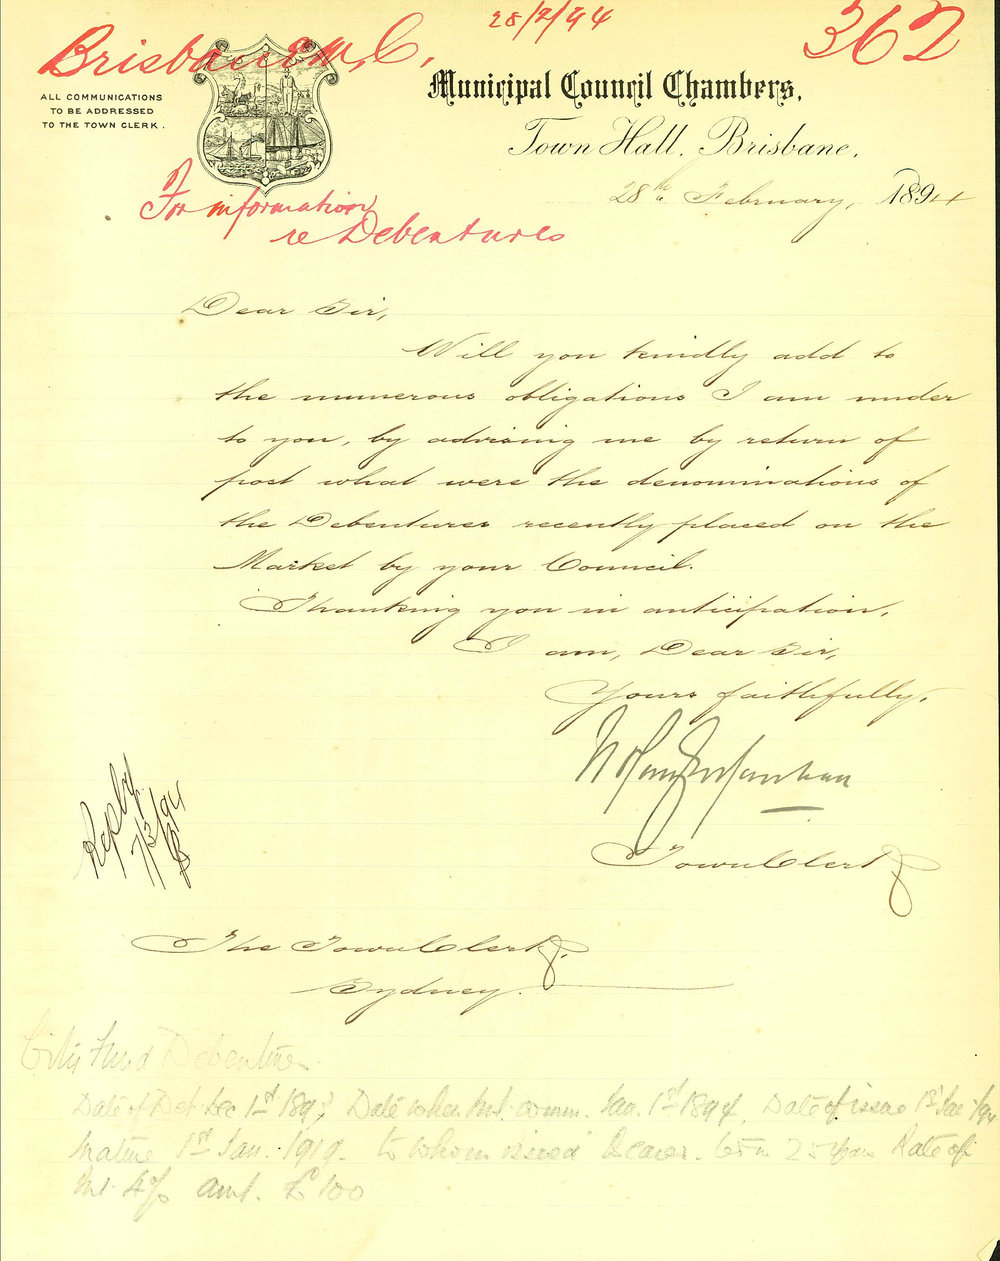 28/2/94
362
Brisbane M. C.
ALL COMMUNICATIONS
TO BE ADDRESSED
TO THE TOWN CLERK.
Municipal Council Chambers,
Town Hall, Brisbane,
28th February, 1894
For information
re Debentures
Dear Sir,
Will you kindly add to
the numerous obligations I am under
to you, by advising me by return of
post what were the denominations of
the Debentures recently placed on the
Market by your Council.
Thanking you in anticipation,
I am, Dear Sir,
Yours faithfully,
Town Clerk
Reply
7/3/94
The Town Clerk,
Sydney.
City Fund Debenture
Date of Deb Dec 1st 1893 Date when Int. comm. Jan. 1st 1894. Date of issue 1st Jan /94
Mature 1st Jan. 1919. To whom issued Bearer. 25 years Rate of
Int 4% amt. £100